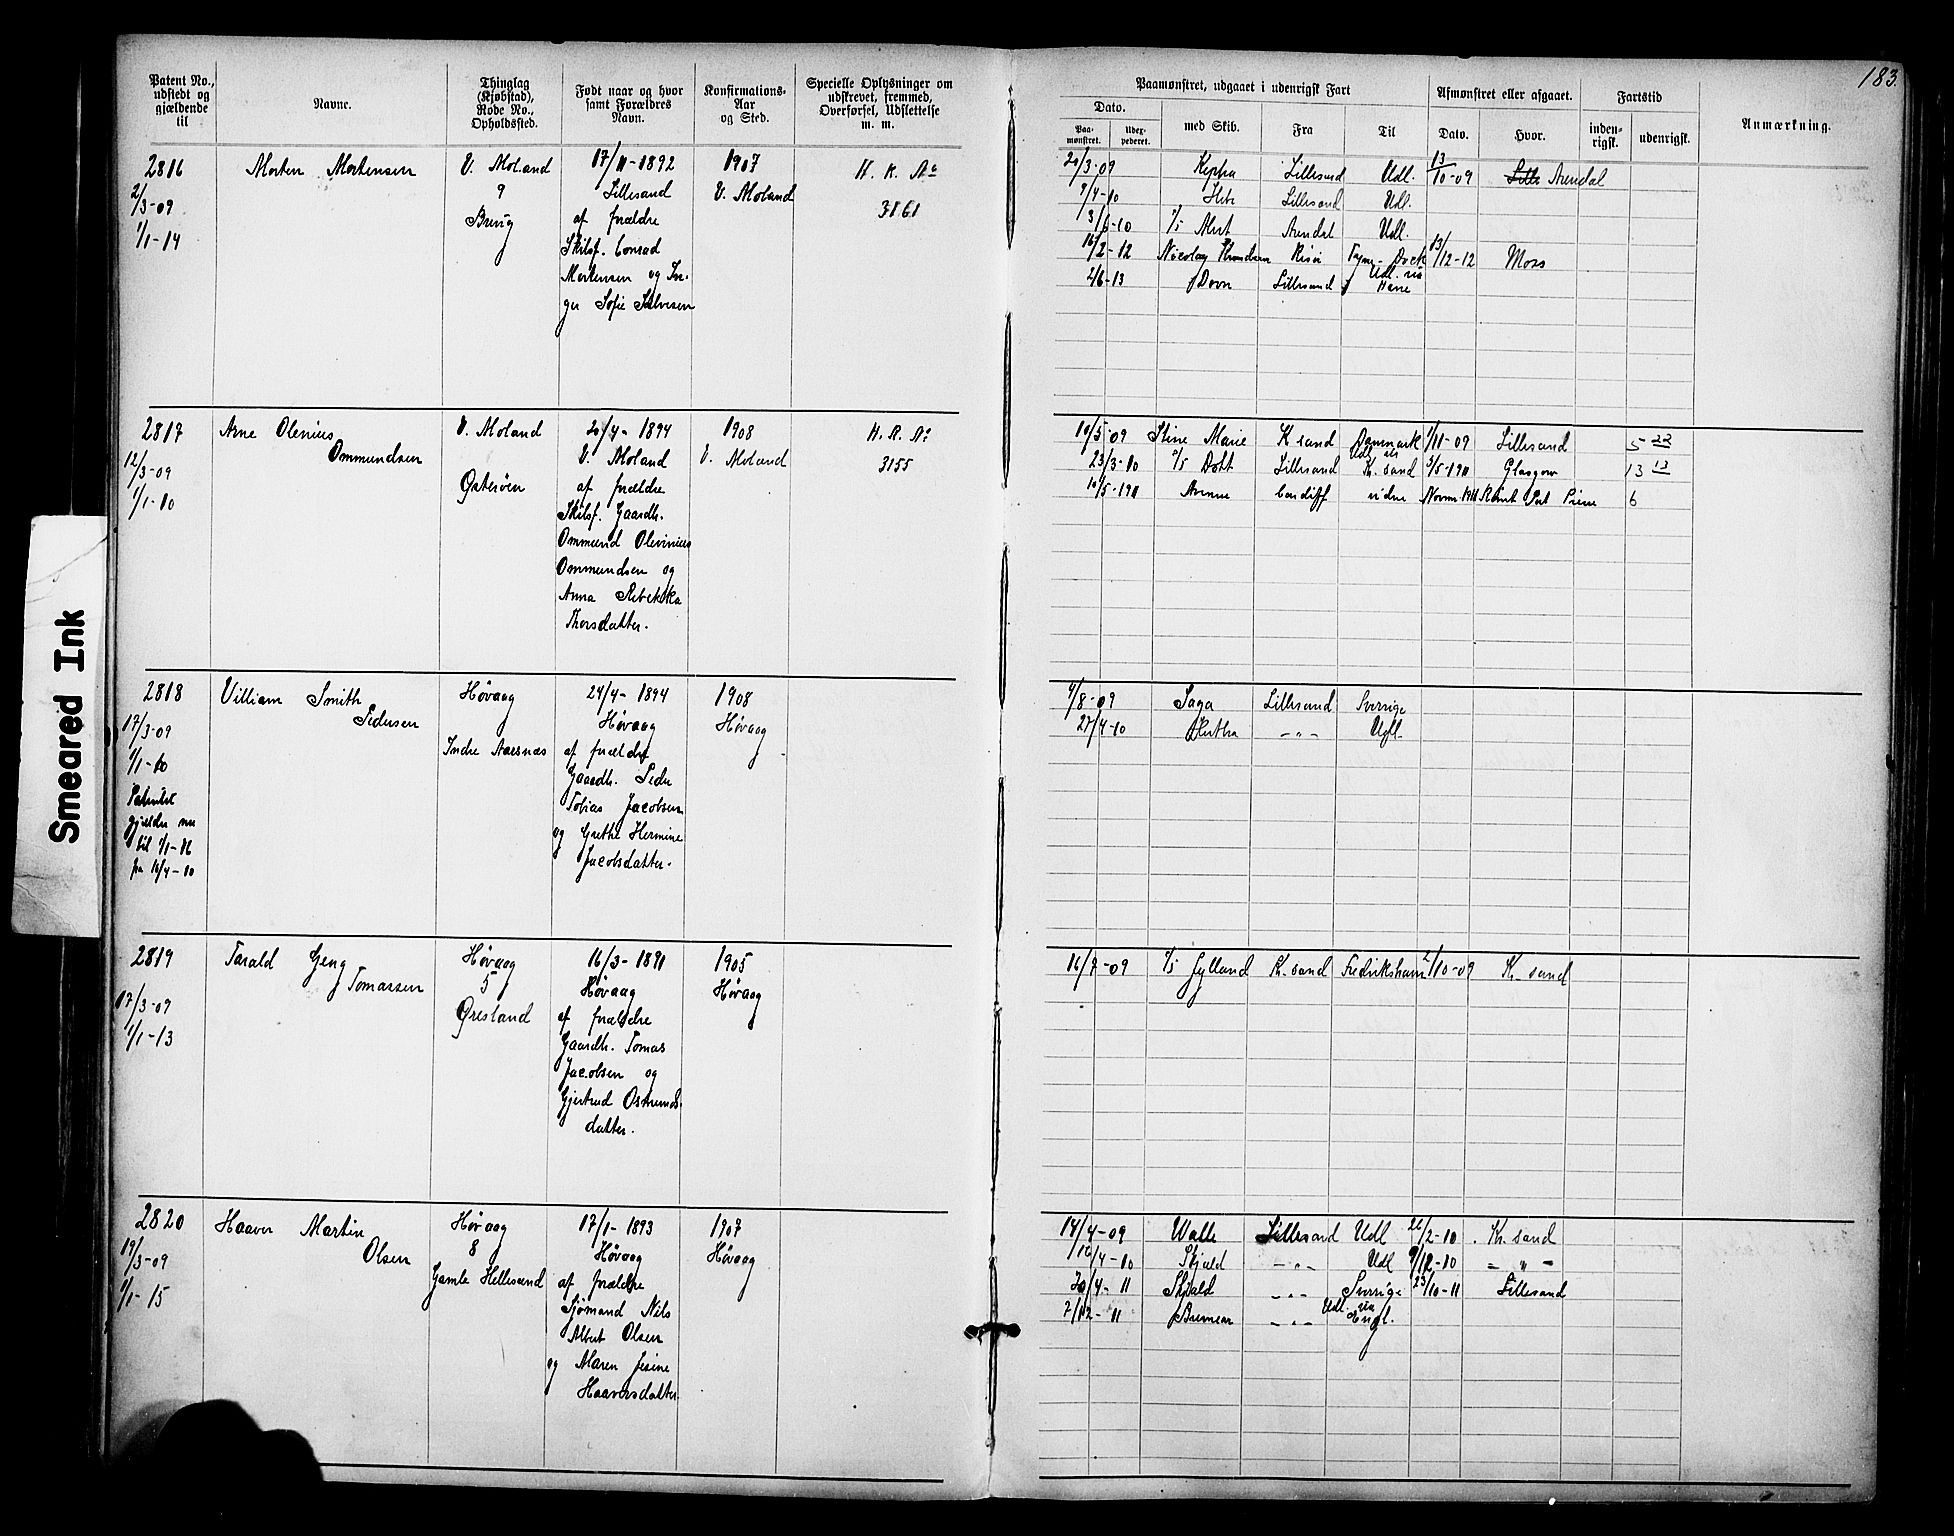 183.
Patent No., udstedt og gjældende til
Navne.
Thinglag (Kjøbstad), Rode No., Opholdssted.
Født naar og hvor samt Forældres Navn.
Konfirmations-Aar og Sted.
Specielle Oplysninger om udskrevet, fremmed, Overførsel, Udslettelse m. m.
Paamønstret, udgaaet i udenrigsk Fart
Dato.
Paamønstret.
Uderpederet.
med Skib.
Fra
Til
Afmønstret eller afgaaet.
Dato.
Hvor.
Fartstid
inden-rigsk.
udenrigsk.
Anmærkning.
2816
2/3-09
1/1-14
Morten Mortensen
V. Moland
9
17/11-1892
Lillesand
af forældre
Skibsf. Conrad
Mortensen og In-
ger Sofie Salvesen
1907
V. Moland
H. R. No
3161
20/3-09 Lillesand Udl. 13/10-09 Lille Arendal
9/4-10 Hebe Lillesand Udl.
3/6-10 Arendal Udl.
16/2-12 Risør Dock 13/12-12 Moss
2/6-13 Dovre Lillesand Udl. via
2817
12/3-09
1/1-10
Arne Olenius
Ommundsen
V. Moland
Østerøen
20/4-1894
V. Moland
af forældre
Skibsf. Gaardb.
Ommund Olevinius
Ommundsen og
Anna Rebekka
Thorsdatter.
1908
V. Moland
H. R. No
3155
10/5-09 Stine Marie K sand Danmark 1/11-09 Lillesand 5 22
23/3-10 D/S Dott Lillesand Udl. via K. sand 3/5-1911 Glasgow 13 13
10/5-1911 Cardiff vidre Port 6
2818
17/3-09
1/1-10
Patentet
gjælder nu
til 1/1-16
fra 16/4-10
Villiam Smith
Pedersen
Høvaag
Indre Aarsnæs
24/4-1894
Høvaag
af forældre
Gaardb. Peder
Tobias Jacobsen
og Grethe Hermine
Jacobsdatter.
1908
Høvaag
4/8-09 Saga Lillesand Sverrige
27/4-10 Hertha -"- Udl.
2819
17/3-09
1/1-13
Tarald Geng
Tomassen
Høvaag
5
Øresland
16/3-1891
Høvaag
af forældre
Gaardb. Tomas
Jacobsen og
Gjertrud Osmunds-
datter.
1905
Høvaag
16/7-09 D/S Jylland Kr. sand Fredrikshavn /10-09 Kr. sand
2820
19/3-09
1/1-15
Haaver Martin
Olsen
Høvaag
8
Gamle Hellesund
17/1-1893
Høvaag
af forældre
Sjømand Nils
Albert Olsen
og Maren Jesine
Haaversdatter.
1907
Høvaag
14/4-09 Walle Lillesand Udl 26/2-10 Kr. sand
16/4-10 Skjald -"- Udl 9/12-10 -"-
20/4-11 Skjald -"- Sverrige 23/10-11 Lillesand
7/12-11 Bremen -"- Udl. via Engl.
Smeared Ink